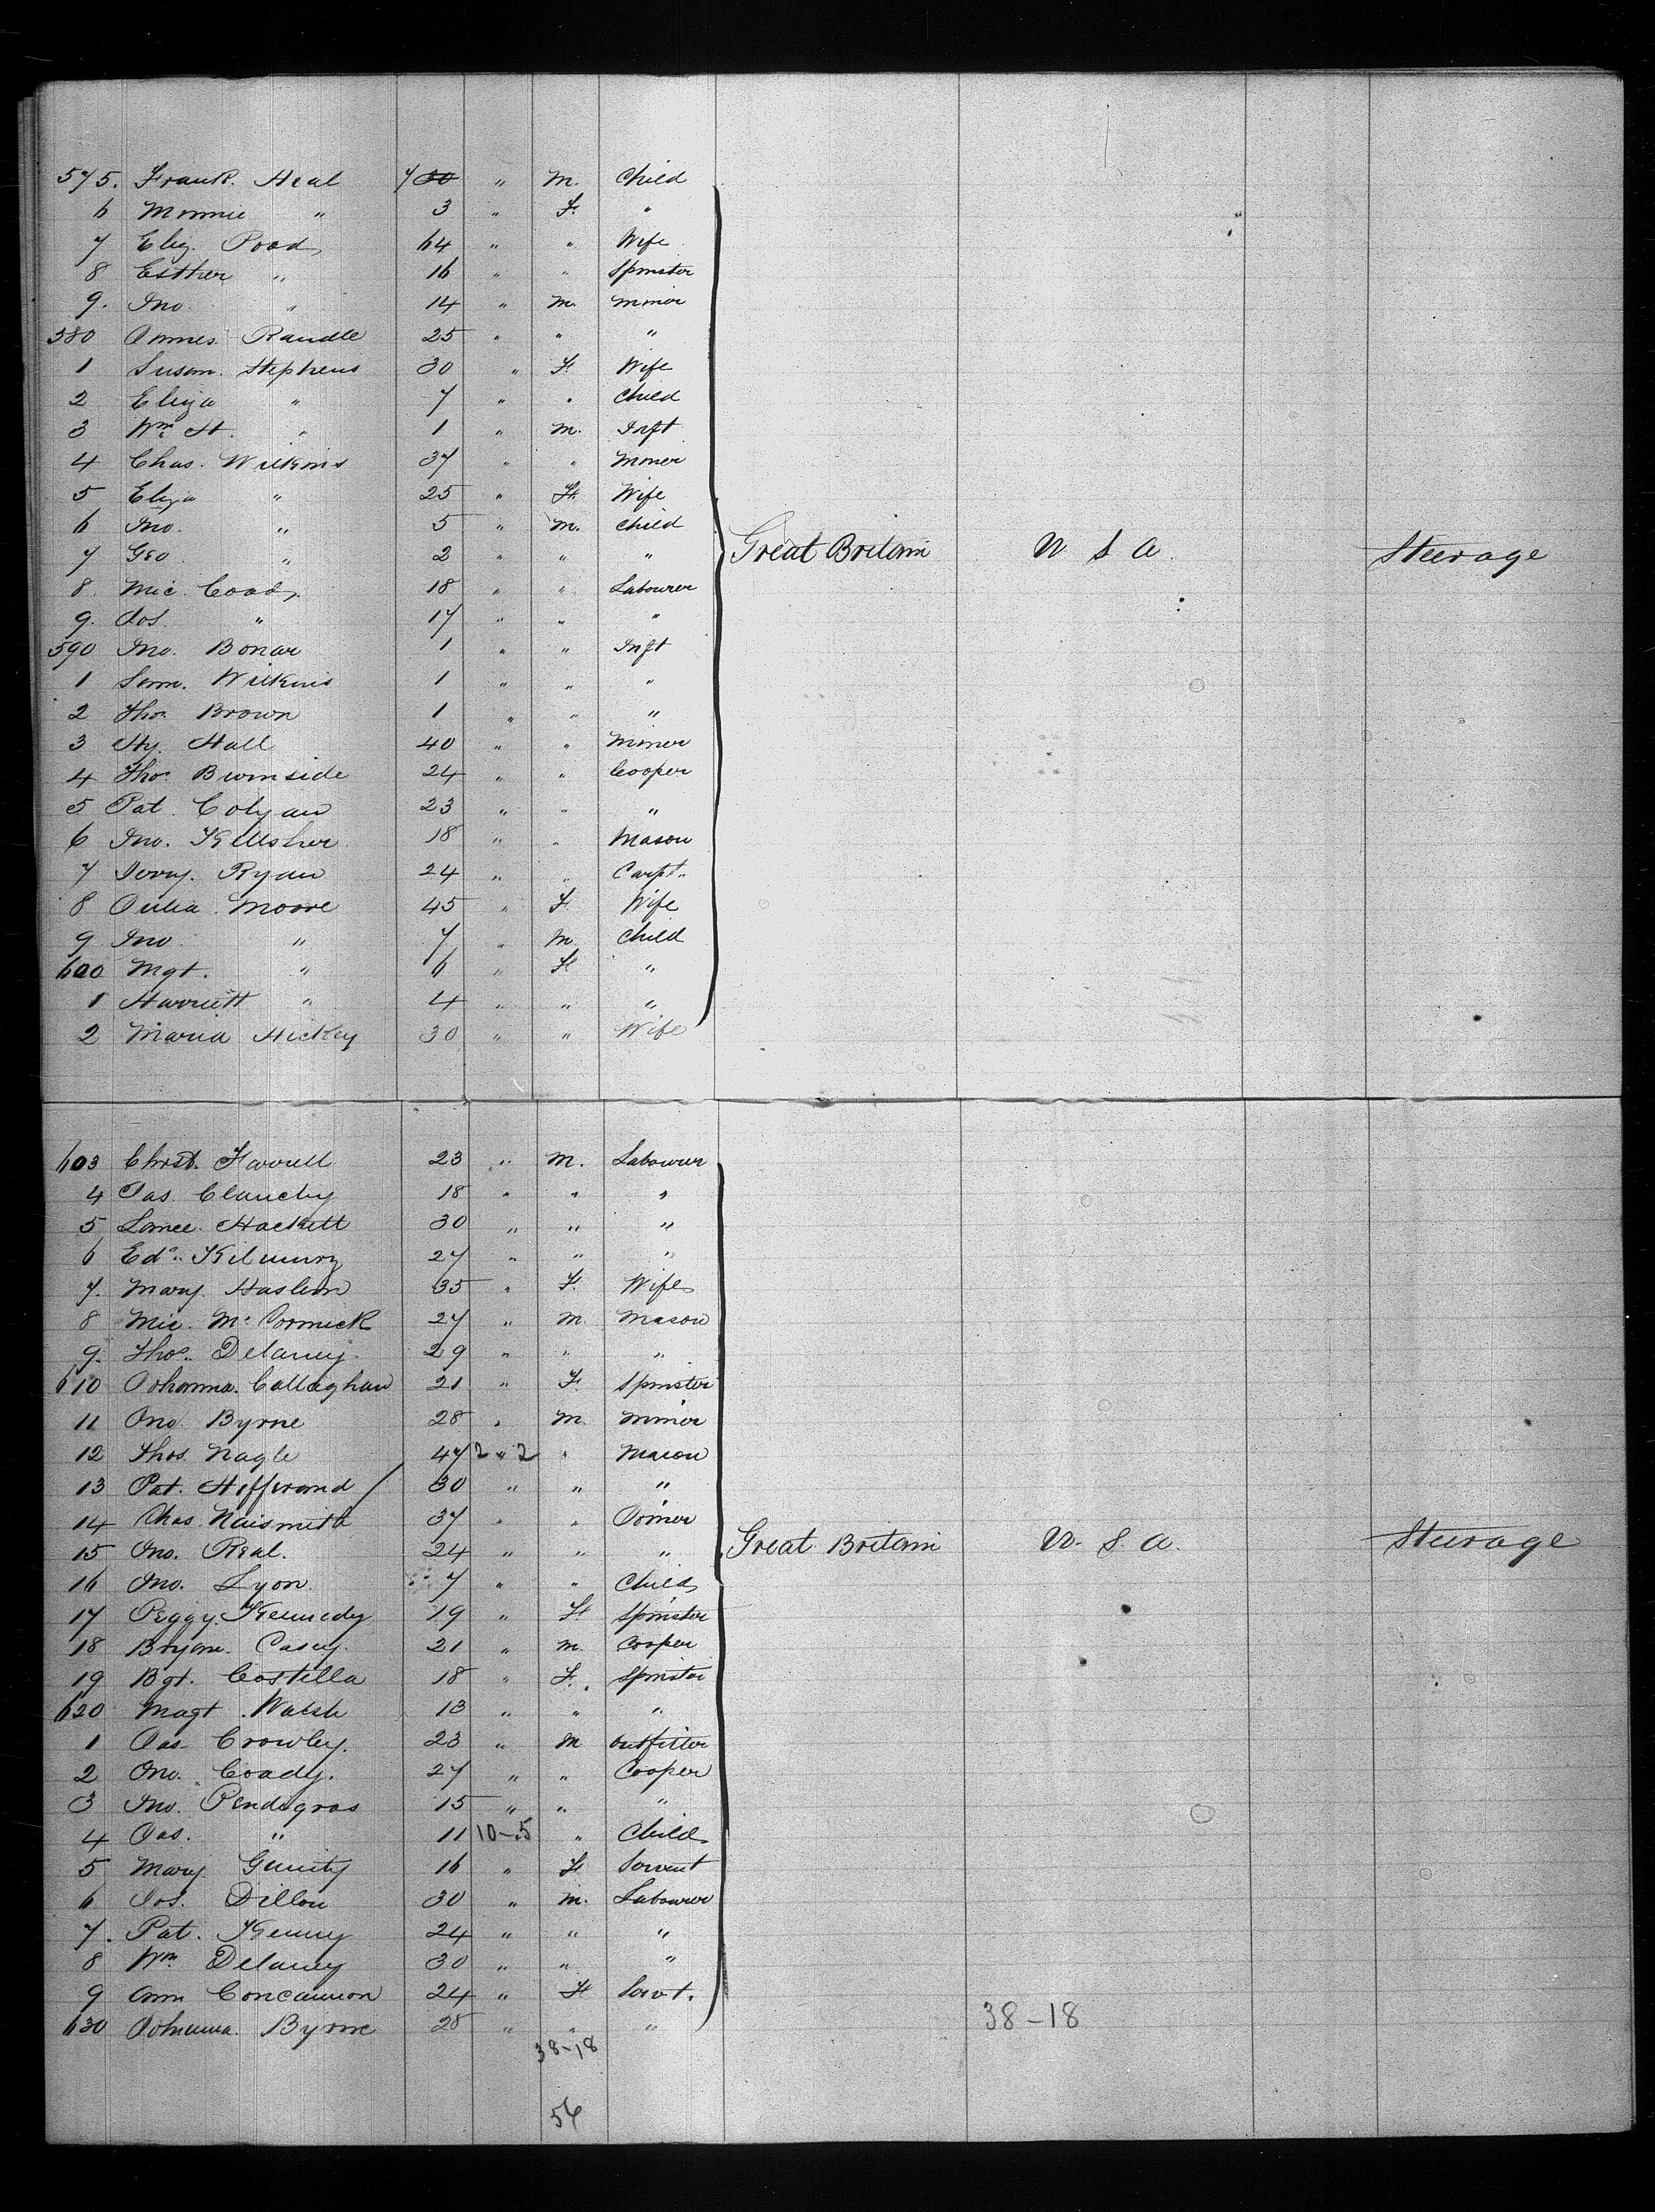 575. Frank. Heal 7 30 " M. Child
6 Minnie " 3 " F. "
7 Eliz. Poad, 64 " " Wife
8 Esther " 16 " " Spinster
9. Jno. " 14 " M. Minor
580 James Randle 25 " " "
1 Susan. Stephens 30 " F. Wife
2 Eliza " 7 " " Child
3 Wm. H. " 1 " M. Inft
4 Chas. Wilkins 37 " " Miner
5 Eliza " 25 " F. Wife
6 Jno. " 5 " M. Child
7 Geo " 2 " " " Great Britain U S A. Steerage
8. Mic. Coad, 18 " " Labourer
9. Jos. " 17 " " "
590 Jno. Bonar 1 " " Inft
1 Sam. Wilkins 1 " " "
2 Thos. Brown 1 " " "
3 Hy. Hall 40 " " Miner
4 Thos. Burnside 24 " " Cooper
5 Pat. Colgan 23 " " "
6 Jno. Kellsher 18 " " Mason
7 Jerry. Ryan 24 " " Carpt.
8 Julia. Moore 45 " F. Wife
9 Jno. " 7 " M. Child
600 Mgt. " 6 " F "
1 Harriett " 4 " " "
2 Maria Hickey 30 " " Wife
603 Christ. Farrell 23 " M. Labourer
4 Jas. Clanchy 18 " " "
5 Lance. Hackett 30 " " "
6 Edd. Kilmurry 27 " " "
7. Mary Haslem 35 " F. Wife
8 Mic. Mc. Cormick 27 " M. Mason
9. Thos. Delaney. 29 " " "
610 Johanna. Callaghan 21 " F. Spinster
11 Jno. Byrne 28 " M. Miner
12 Thos. Nagle 47 2 " 2 " Mason
13 Pat. Hefferand / 30 " " "
14 Chas. Naismith 37 " " Joiner
15 Jno. Real. 24 " " " Great Britain U. S. A. Steerage
16 Jno. Lyon. 7 " " Child
17 Peggy. Kennedy 19 " F Spinster
18 Bryan. Casey. 21 " M. Cooper
19 Bgt. Costella 18 " F. Spinster
620 Magt. Walsh 13 " " "
1 Jas. Crowley. 23 " M Outfitter
2 Jno. Coady. 27 " " Cooper
3 Jno. Pendigras 15 " " "
4 Jas. " 11 10-5 " Child
5 Mary Ginity 16 " F Servant
6 Jos. Dillon 30 " M. Labourer
7. Pat. Kenny 24 " " "
8 Wm. Delaney 30 " " "
9 Ann Concannon 24 " F Servt.
630 Johanna. Byrne 28 " " " 38-18
38-18
56